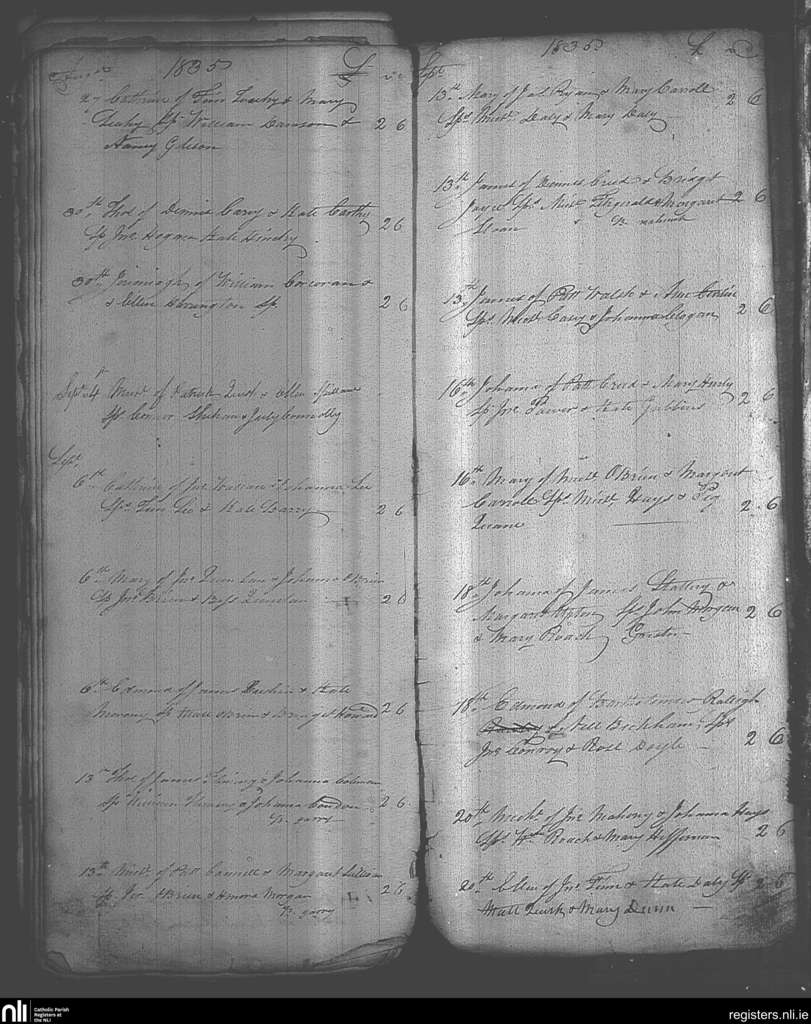 1835
27 Cathrine of Tim Leahy & Mary
Leahy Sps William Dawson &
Nancy Gleeson 2 6
30th Thos of Dennis Carry & Kate Carthy
Sp Jno Hogan & Kate Hinchy 2 6
30th Jeremiah of William Corcoran &
& Ellen Harrington Sp. 2 6
Sept 4 Michl of Patrick Quirk & Ellen
Sps Connor Shehan & July Connolly
Sept
6th Cathrine of Jno & Johanna Lee
Sps Tim Lee & Kate Barry 2 6
6th Mary of Jno Quinlan & Johanna OBrien
Sp Jno Brien & Bess Quinlan 2 6
6th Edmond of James & Kate
Morony Sp Matt Obrien & Bridget Howard 2 6
13th Thos of James Fleming & Johanna Coleman
Sp William Fleming & Johanna Condon 2 6
B. garry
13th Michl of Patt & Margaret Sullivan
Sp Jer OBrien & Honora Morgan 2 6
B. garry
1835
Sept
13th Mary of Jas Ryan & Mary Carroll
Sps Michl Daly & Mary Daly 2 6
13th James of Dennis Creed & Bridgt
Joyce Sps Michl Fitzgerald & Margaret 2 6
Sloan
13th James of Patt Walsh &
Sps Michl Casey & Johanna Clogan 2 6
16th Johanna of Patt Creed & Mary Hurly
Sp Jno Power & Kate Gubbins 2 6
16th Mary of Michl OBrien & Margaret
Carroll Sps Michl Hays & Peg
2 6
18th Johana of James Slattery &
Margaret Upton Sps John Morgan 2 6
& Mary Roach
18th Edmond of Bartholomew Raleigh
& Nell Bickham Sps
Jno Conroy & Rose Doyle 2 6
20th Michl of Jno Mahony & Johanna Hays
Sps Wm Roach & Mary Heffernan 2 6
20th Ellen of Jno & Kate Daly Sp 2 6
Matt Quirk & Mary Dunn
nli
Catholic Parish
Registers at
the NLI
registers.nli.ie